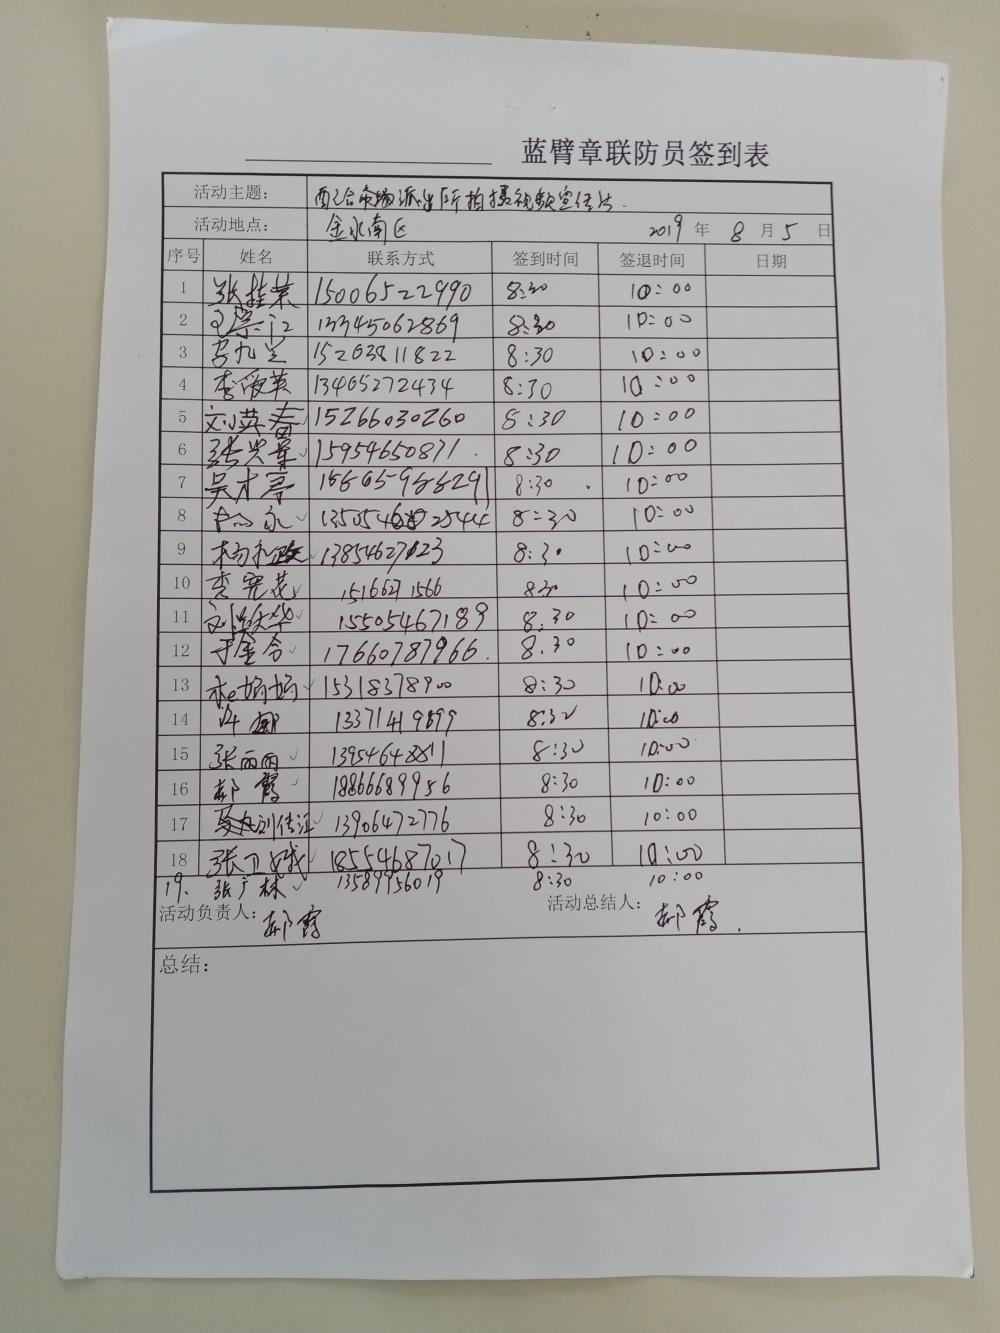 蓝臂章联防员签到表
活动主题： 配合 派出所拍摄视频宣传片.
活动地点： 金水南区 2019 年 8 月 5 日
序号 姓名 联系方式 签到时间 签退时间 日期
1 张桂荣 15006522990 8:30 10:00
2 13345062869 8:30 10:00
3 15263811822 8:30 10:00
4 李爱英 13465272434 8:30 10:00
5 刘英春 15266030260 8:30 10:00
6 15954650871 8:30 10:00
7 吴才亭 8:30 10:00
8 8:30 10:00
9 8:30 10:00
10 李宪花 8:30 10:00
11 15505467189 8:30 10:00
12 于金合 17660787966. 8:30 10:00
13 15318378900 8:30 10:00
14 许 8:30 10:00
15 张丽丽 8:30 10:00
16 郝霞 18866689956 8:30 10:00
17 刘传江 13906472776 8:30 10:00
18 张卫 18554687017 8:30 10:00
19. 张广林 13589956019 8:30 10:00
活动负责人： 郝霞 活动总结人： 郝霞.
总结：